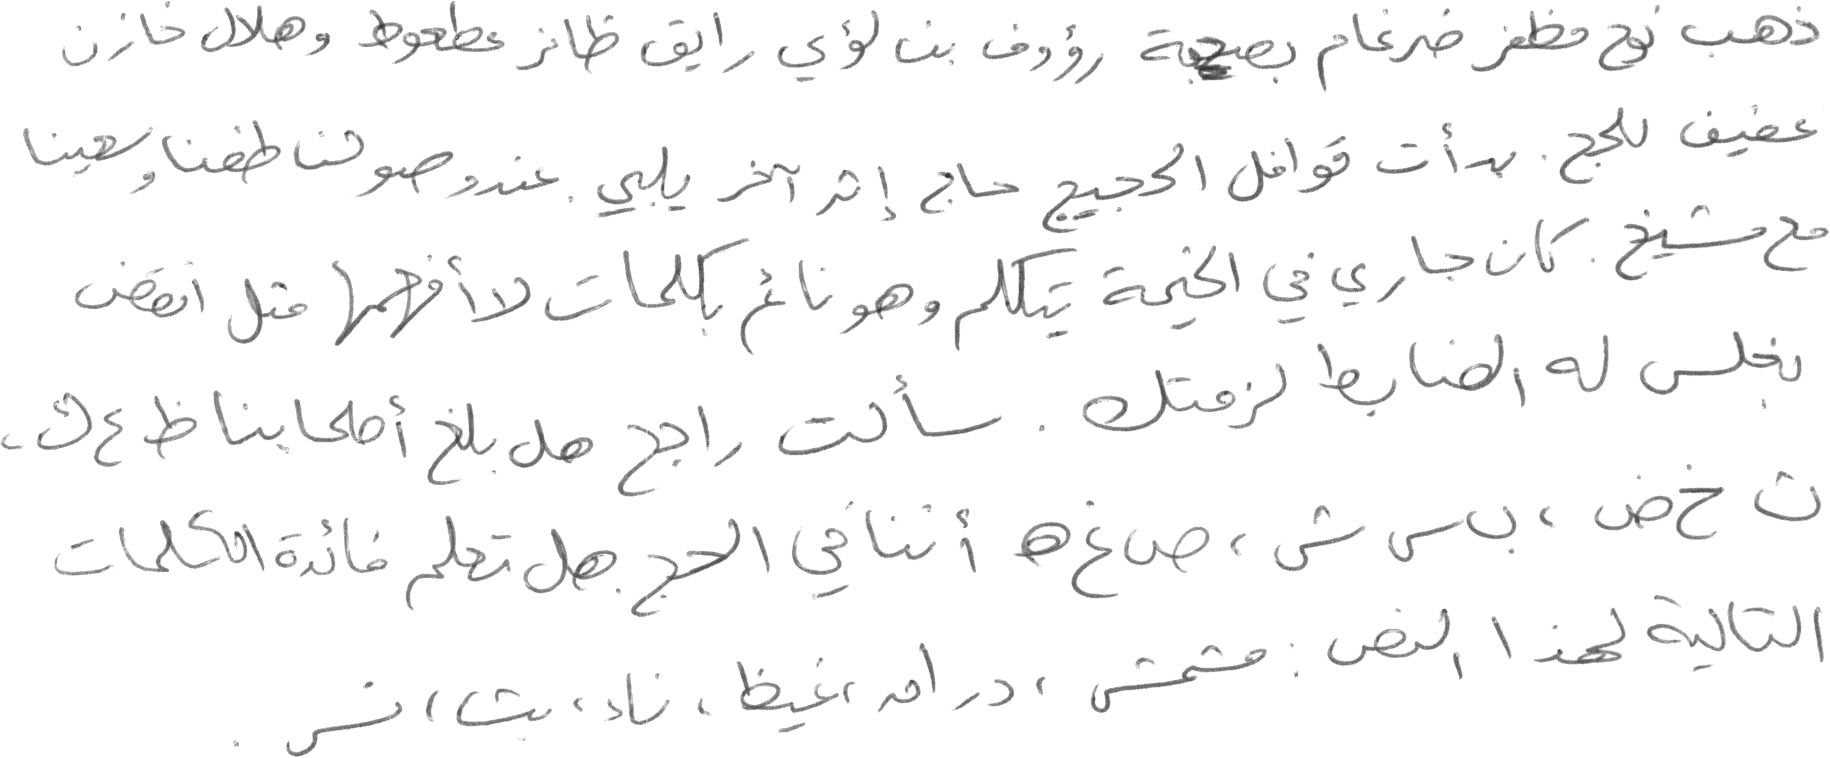 ذهب نوح مظفر ضرغام بصحبة رؤوف بن لؤي رايق ظافر عطعوط وهلال خازن
عفيف للحج. بدأت قوافل الحجيج حاج إثر آخر يلبي. عند وصولنا طفنا وسعينا
مع مشيخ. كان جاري في الخيمة يتكلم وهو نائم بكلمات لا أفهمها مثل انقض
بغلس له الضابط لزمتك. سألت راجح هل بلغ أصحابنا ظ ع ك،
ث خ ض، ب س ش، ص غ ه أننا في الحج. هل تعلم فائدة الكلمات
التالية لهذا النص: مشمش، درامه، غيظ، ناد، بث، نس.